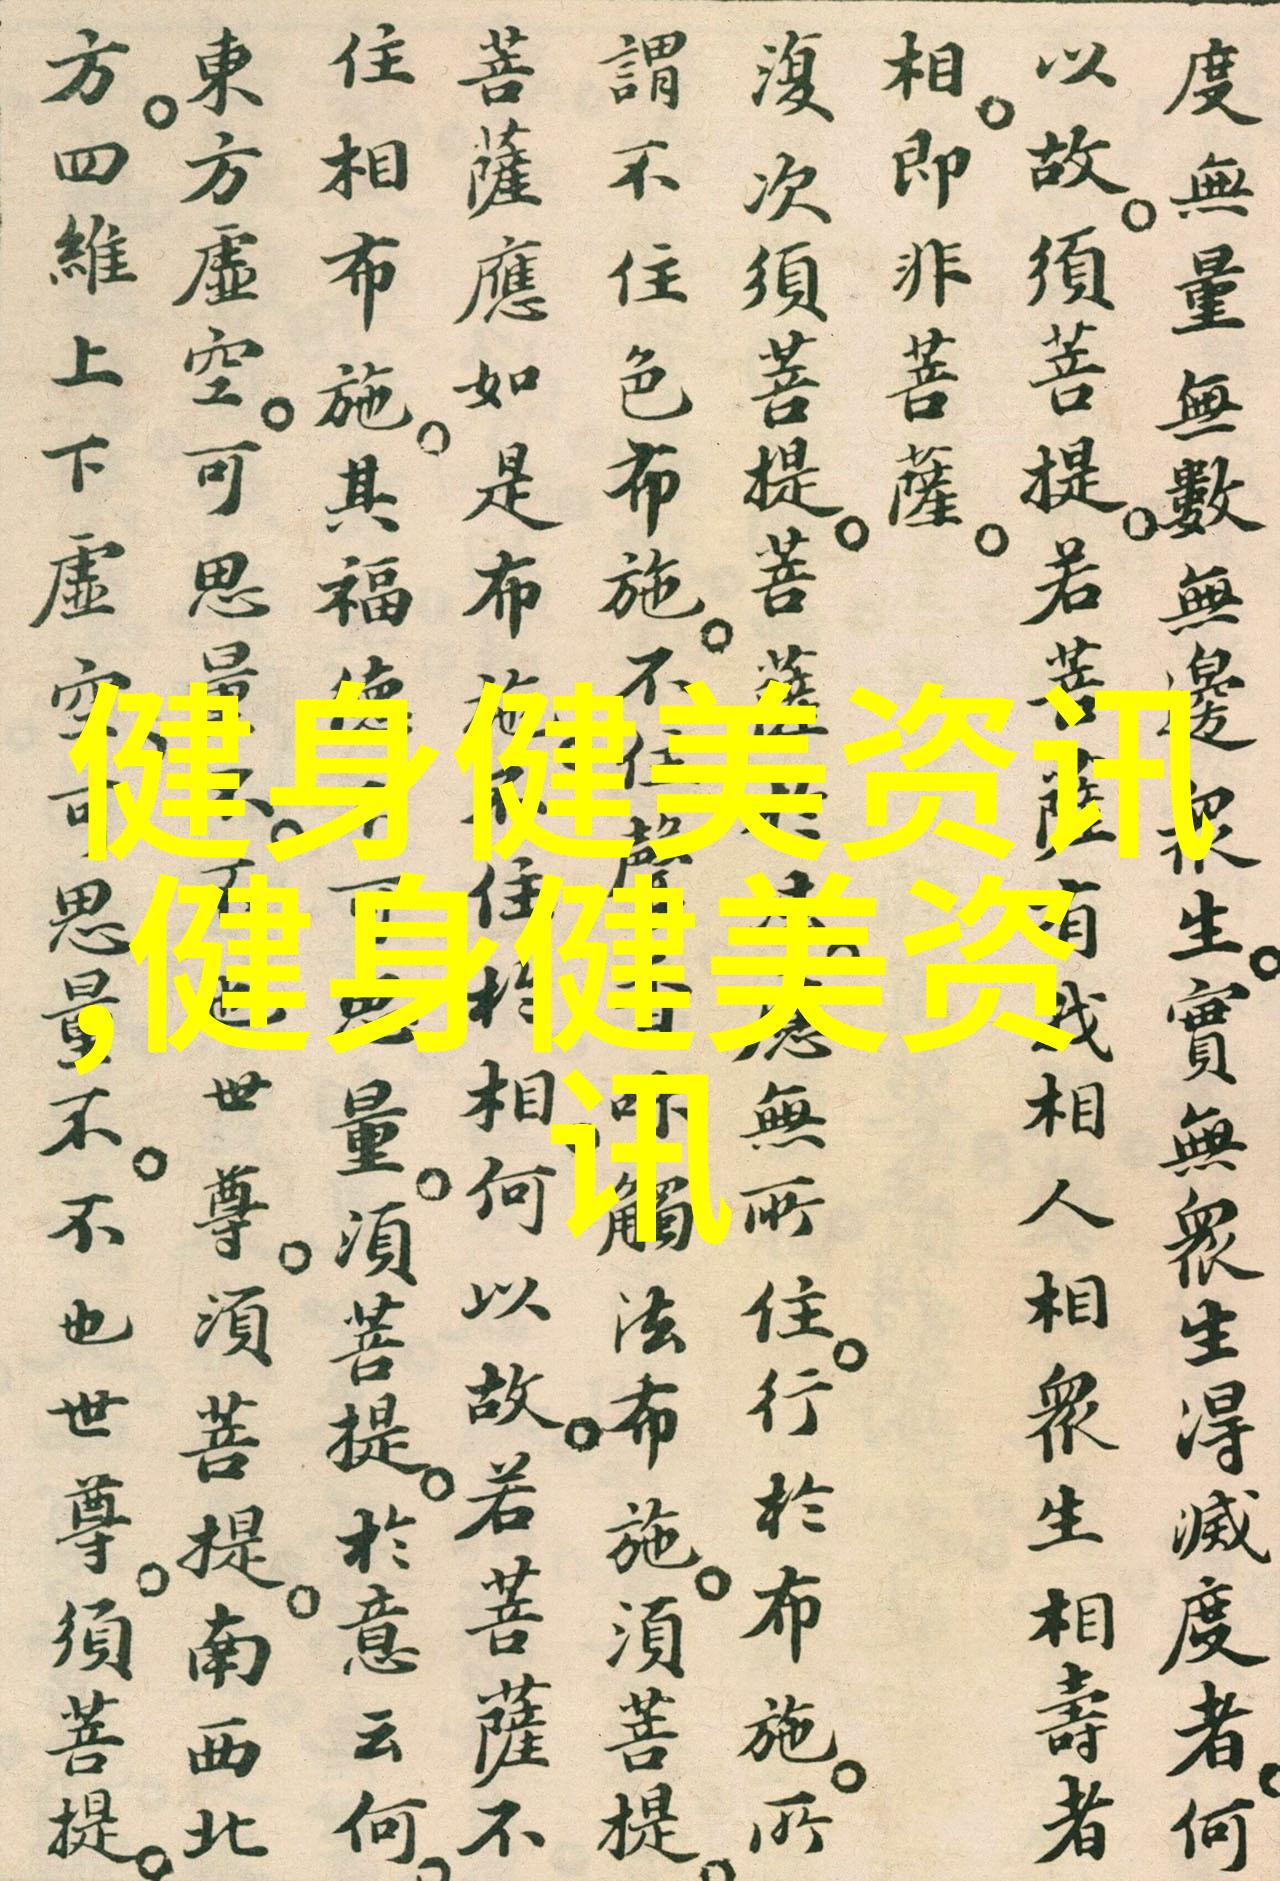 度無量無數無邊衆生。實無衆生得滅度者。何
以故。須菩提。若菩薩有我相人相衆生相壽者
相。即非菩薩。
復次須菩提。菩薩於法。應無所住。行於布施。所
謂不住色布施。不住聲香味觸法布施。須菩提。
菩薩應如是布施。不住於相。何以故。若菩薩不
住相布施。其福德不可思量。須菩提。於意云何。
東方虛空。可思量不。不也世尊。須菩提。南西北
方。四維上下虛空。可思量不。不也世尊。須菩提。
健身健美资讯
,健身健美资
讯